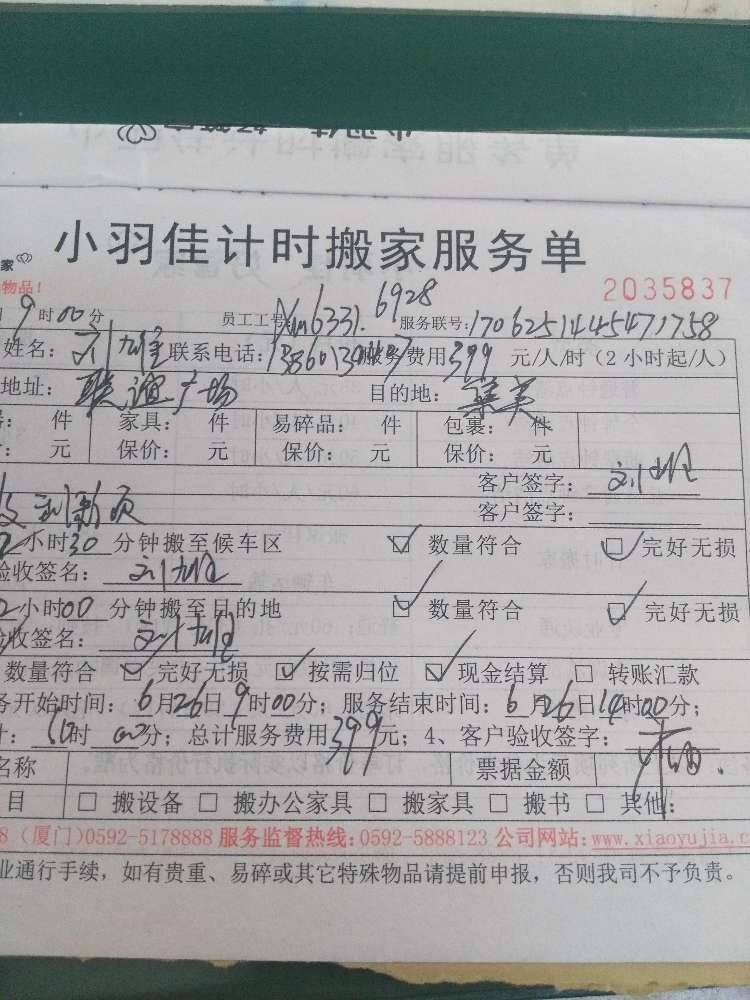 小羽佳计时搬家服务单
家
物品！
2035837
9时00分 员工工号: 6331.6928 服务联号:170625144545471758
姓名: 联系电话: 服务费用399 元/人/时（2小时起/人）
地址: 联谊广场 目的地: 集美
件 家具： 件 易碎品： 件 包裹： 件
元 保价： 元 保价： 元 保价： 元
客户签字：
客户签字：
2小时30分钟搬至候车区 ☑ 数量符合 ☑ 完好无损
验收签名：
2小时00分钟搬至目的地 ☑ 数量符合 ☑ 完好无损
验收签名：
数量符合 ☑ 完好无损 ☑ 按需归位 ☑ 现金结算 □ 转账汇款
务开始时间：6月26日9时00分；服务结束时间：6月26日14时00分；
计： 时00分；总计服务费用399元；4、客户验收签字：
名称 票据金额
目 □ 搬设备 □ 搬办公家具 □ 搬家具 □ 搬书 □ 其他：
8（厦门)0592-5178888 服务监督热线:0592-5888123 公司网站:www.xiaoyujia.c
业通行手续，如有贵重、易碎或其它特殊物品请提前申报，否则我司不予负责。